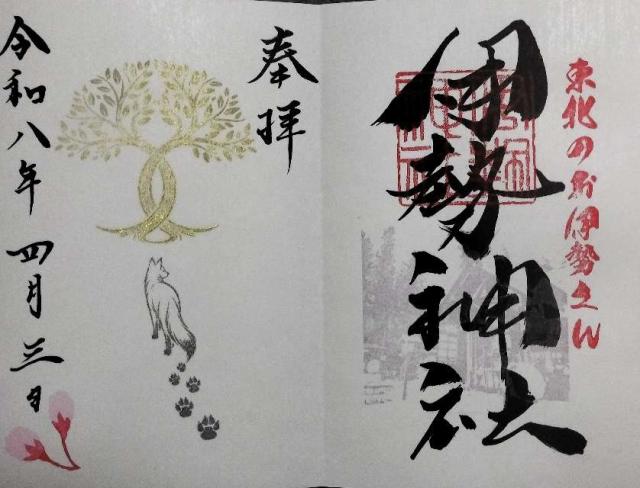 東北のお伊勢さん
伊勢神社
奉拝
令和八年四月三日